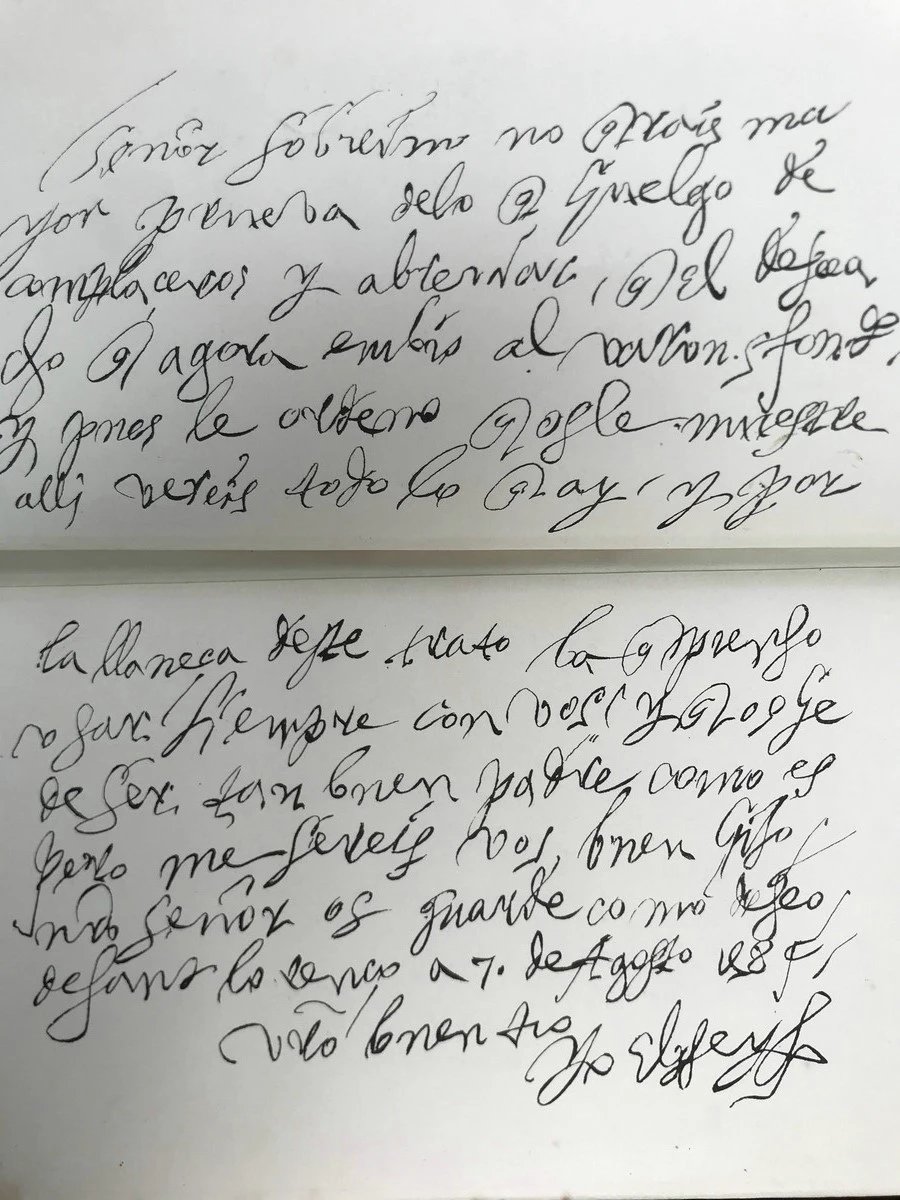 Señor sobrino no qrais ma
yor prueva delo q huelgo de
complaceros y
do q agora embio al varon sfondº,
y pues le ordeno q os le muestre
alli vereis todo lo q ay, y por
la llaneca deste trato la q prendo
usar siempre con vos, y q os he
de ser tan buen padre como es
pero me sereis vos, buen hijo
nrõ señor os guarde como deseo
desant lorenco a 7. de Agosto 1585
vrõ buen tio
Yo El Rey